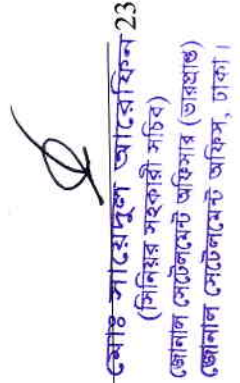 মোঃ সায়েদুল আরেফিন 23
(সিনিয়র সহকারী সচিব)
জোনাল সেটেলমেন্ট অফিসার (ভারপ্রাপ্ত)
জোনাল সেটেলমেন্ট অফিস, ঢাকা।